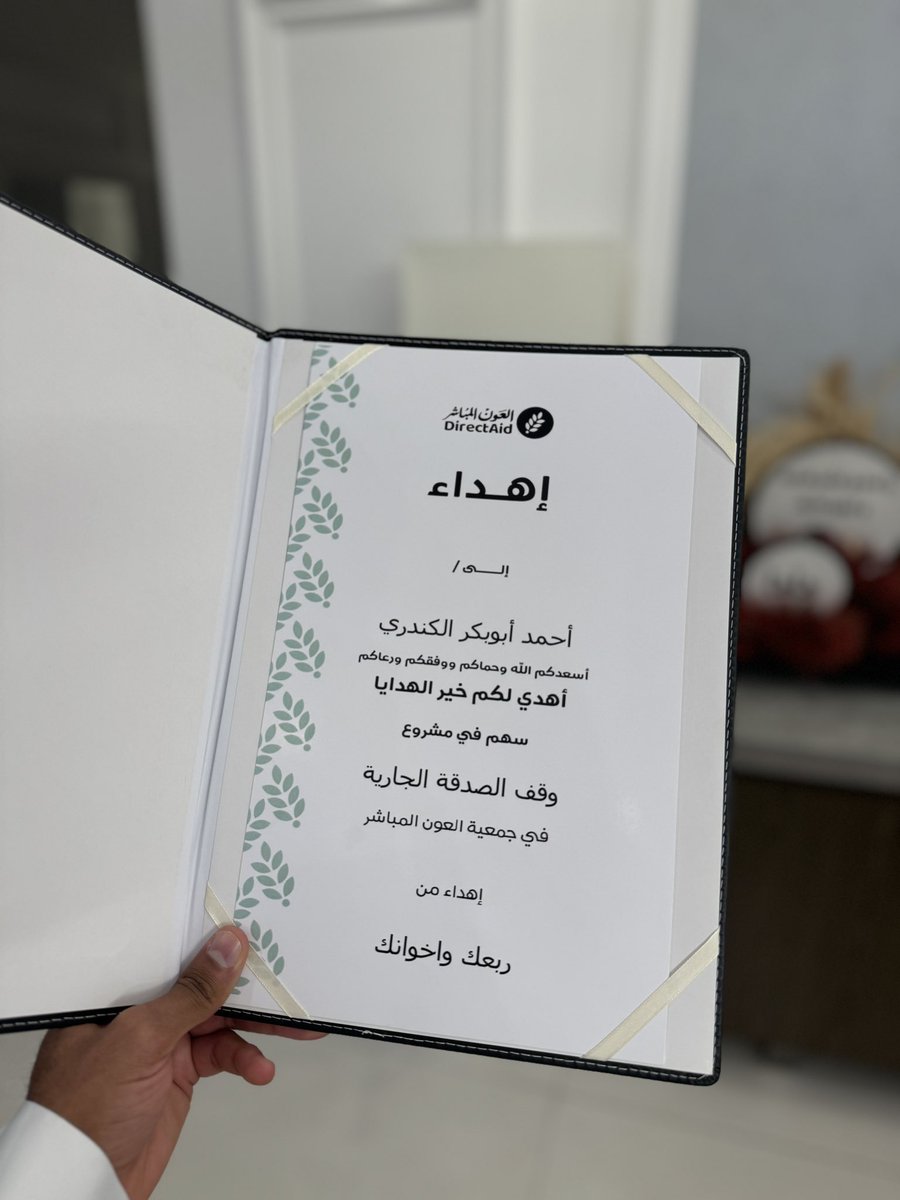 العون المباشر
DirectAid
إهـداء
إلـــى /
أحمد أبوبكر الكندري
أسعدكم الله وحماكم ووفقكم ورعاكم
أهدي لكم خير الهدايا
سهم في مشروع
وقف الصدقة الجارية
في جمعية العون المباشر
إهداء من
ربعك واخوانك